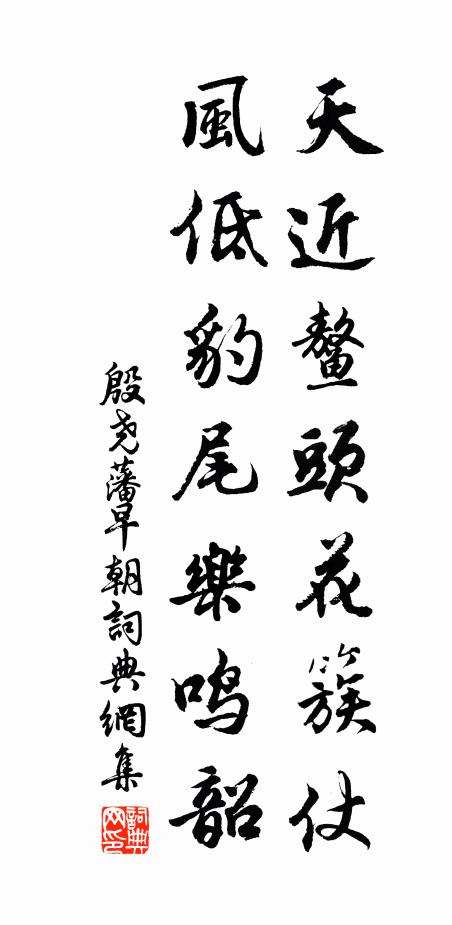 天近鼇頭花簇仗
風低豹尾樂鳴韶
殷堯藩早朝詞典網集
詞典网印